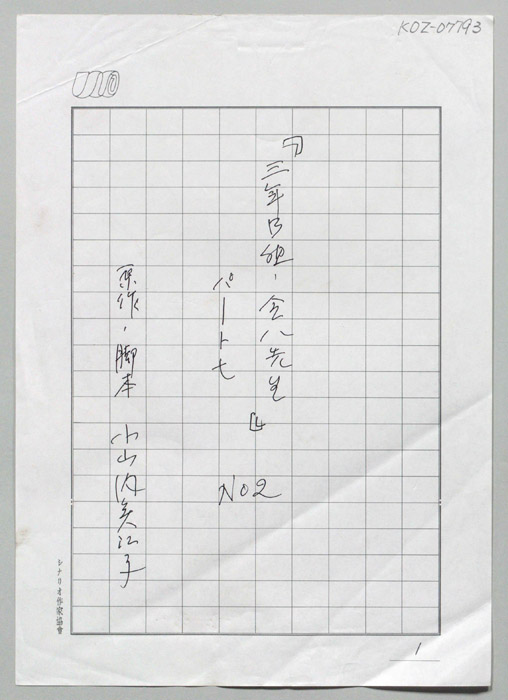 KOZ-07793
『三年B組・金八先生』
パート七
NO2
原作・脚本 小山内美江子
シナリオ作家協會
1